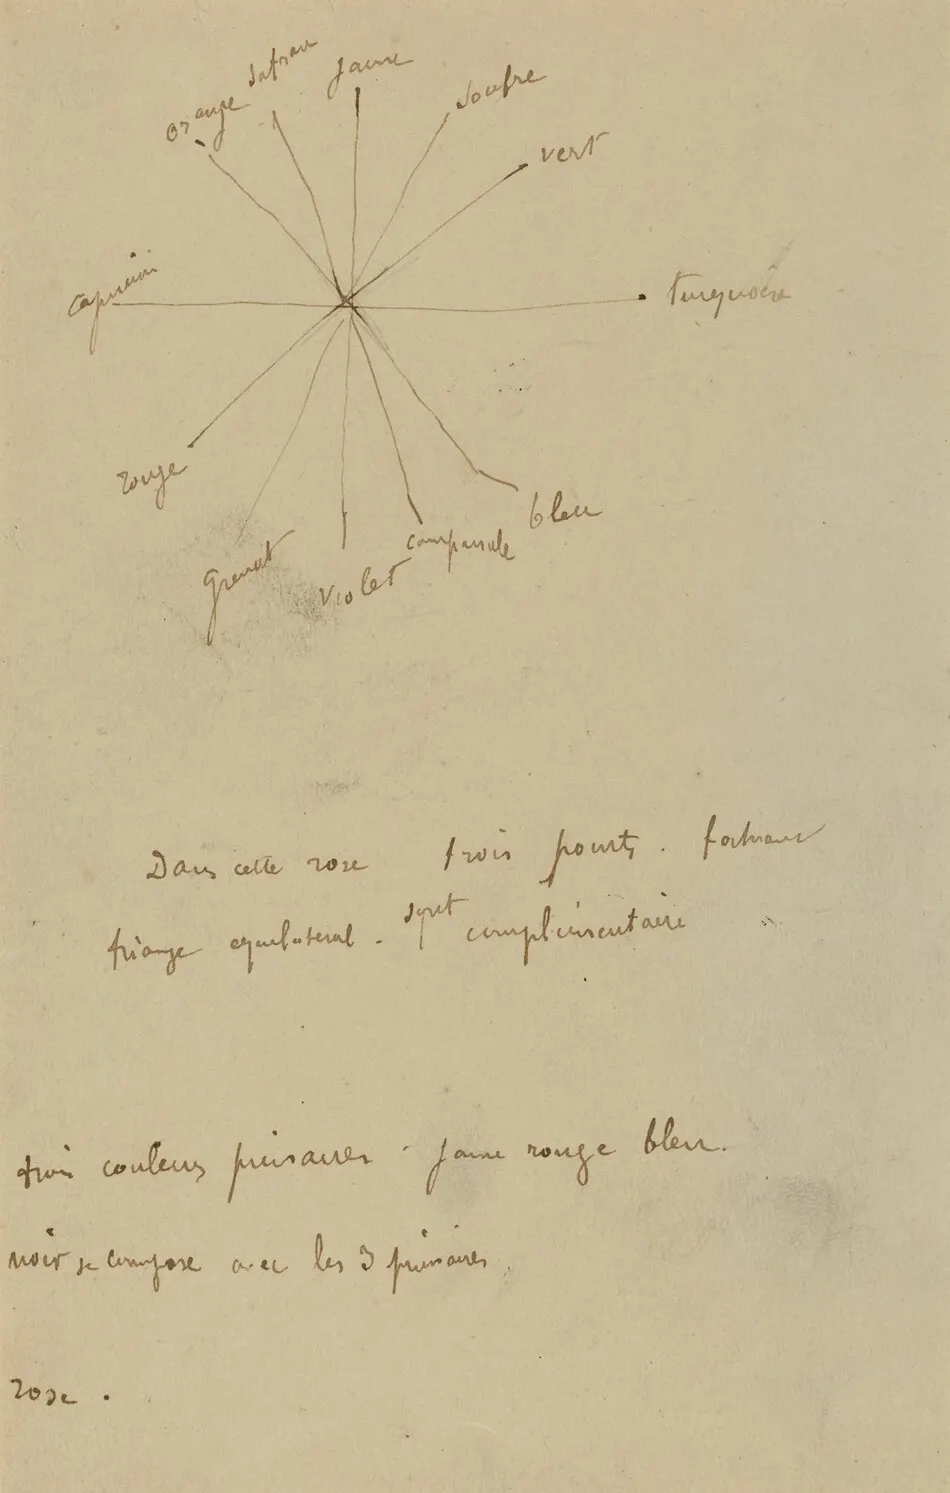 orange
safran
jaune
soufre
vert
capucine
turquoise
rouge
grenat
violet
campanule
bleu
Dans cette rose trois points. formant
triange equilateral. sont complimentaire
trois couleurs primaires - jaune rouge bleu.
noir se compose avec les 3 primaires.
rose.